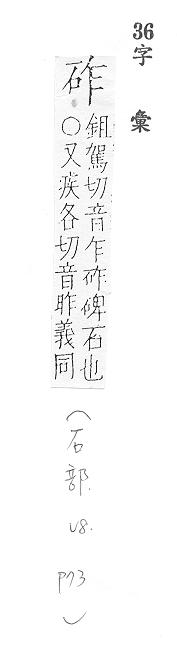 36
字彙
砟
鉏駕切音乍砟碑石也
○又疾各切音昨義同
(石部. v8. P73)